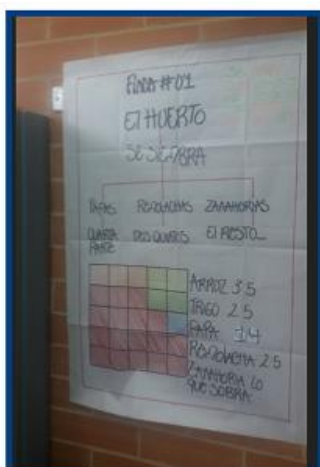 El HUERTO
SE SIEMBRA
PAPAS REMOLACHAS ZANAHORIAS
CUARTA PARTE DOS QUINTOS El RESTO...
ARROZ 3 5
TRIGO 2 5
PAPA 1 4
REMOLACHA 2 5
ZANAHORIA LO
QUE SOBRA